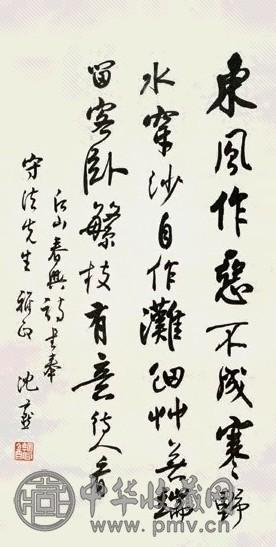 東風作惡不成寒野
水穿沙自作灘細艸無端
留客臥繁枝有意待人看
后山春興詩書奉
守 先生 雅正 沈
中华收藏网
www.pmv.cn